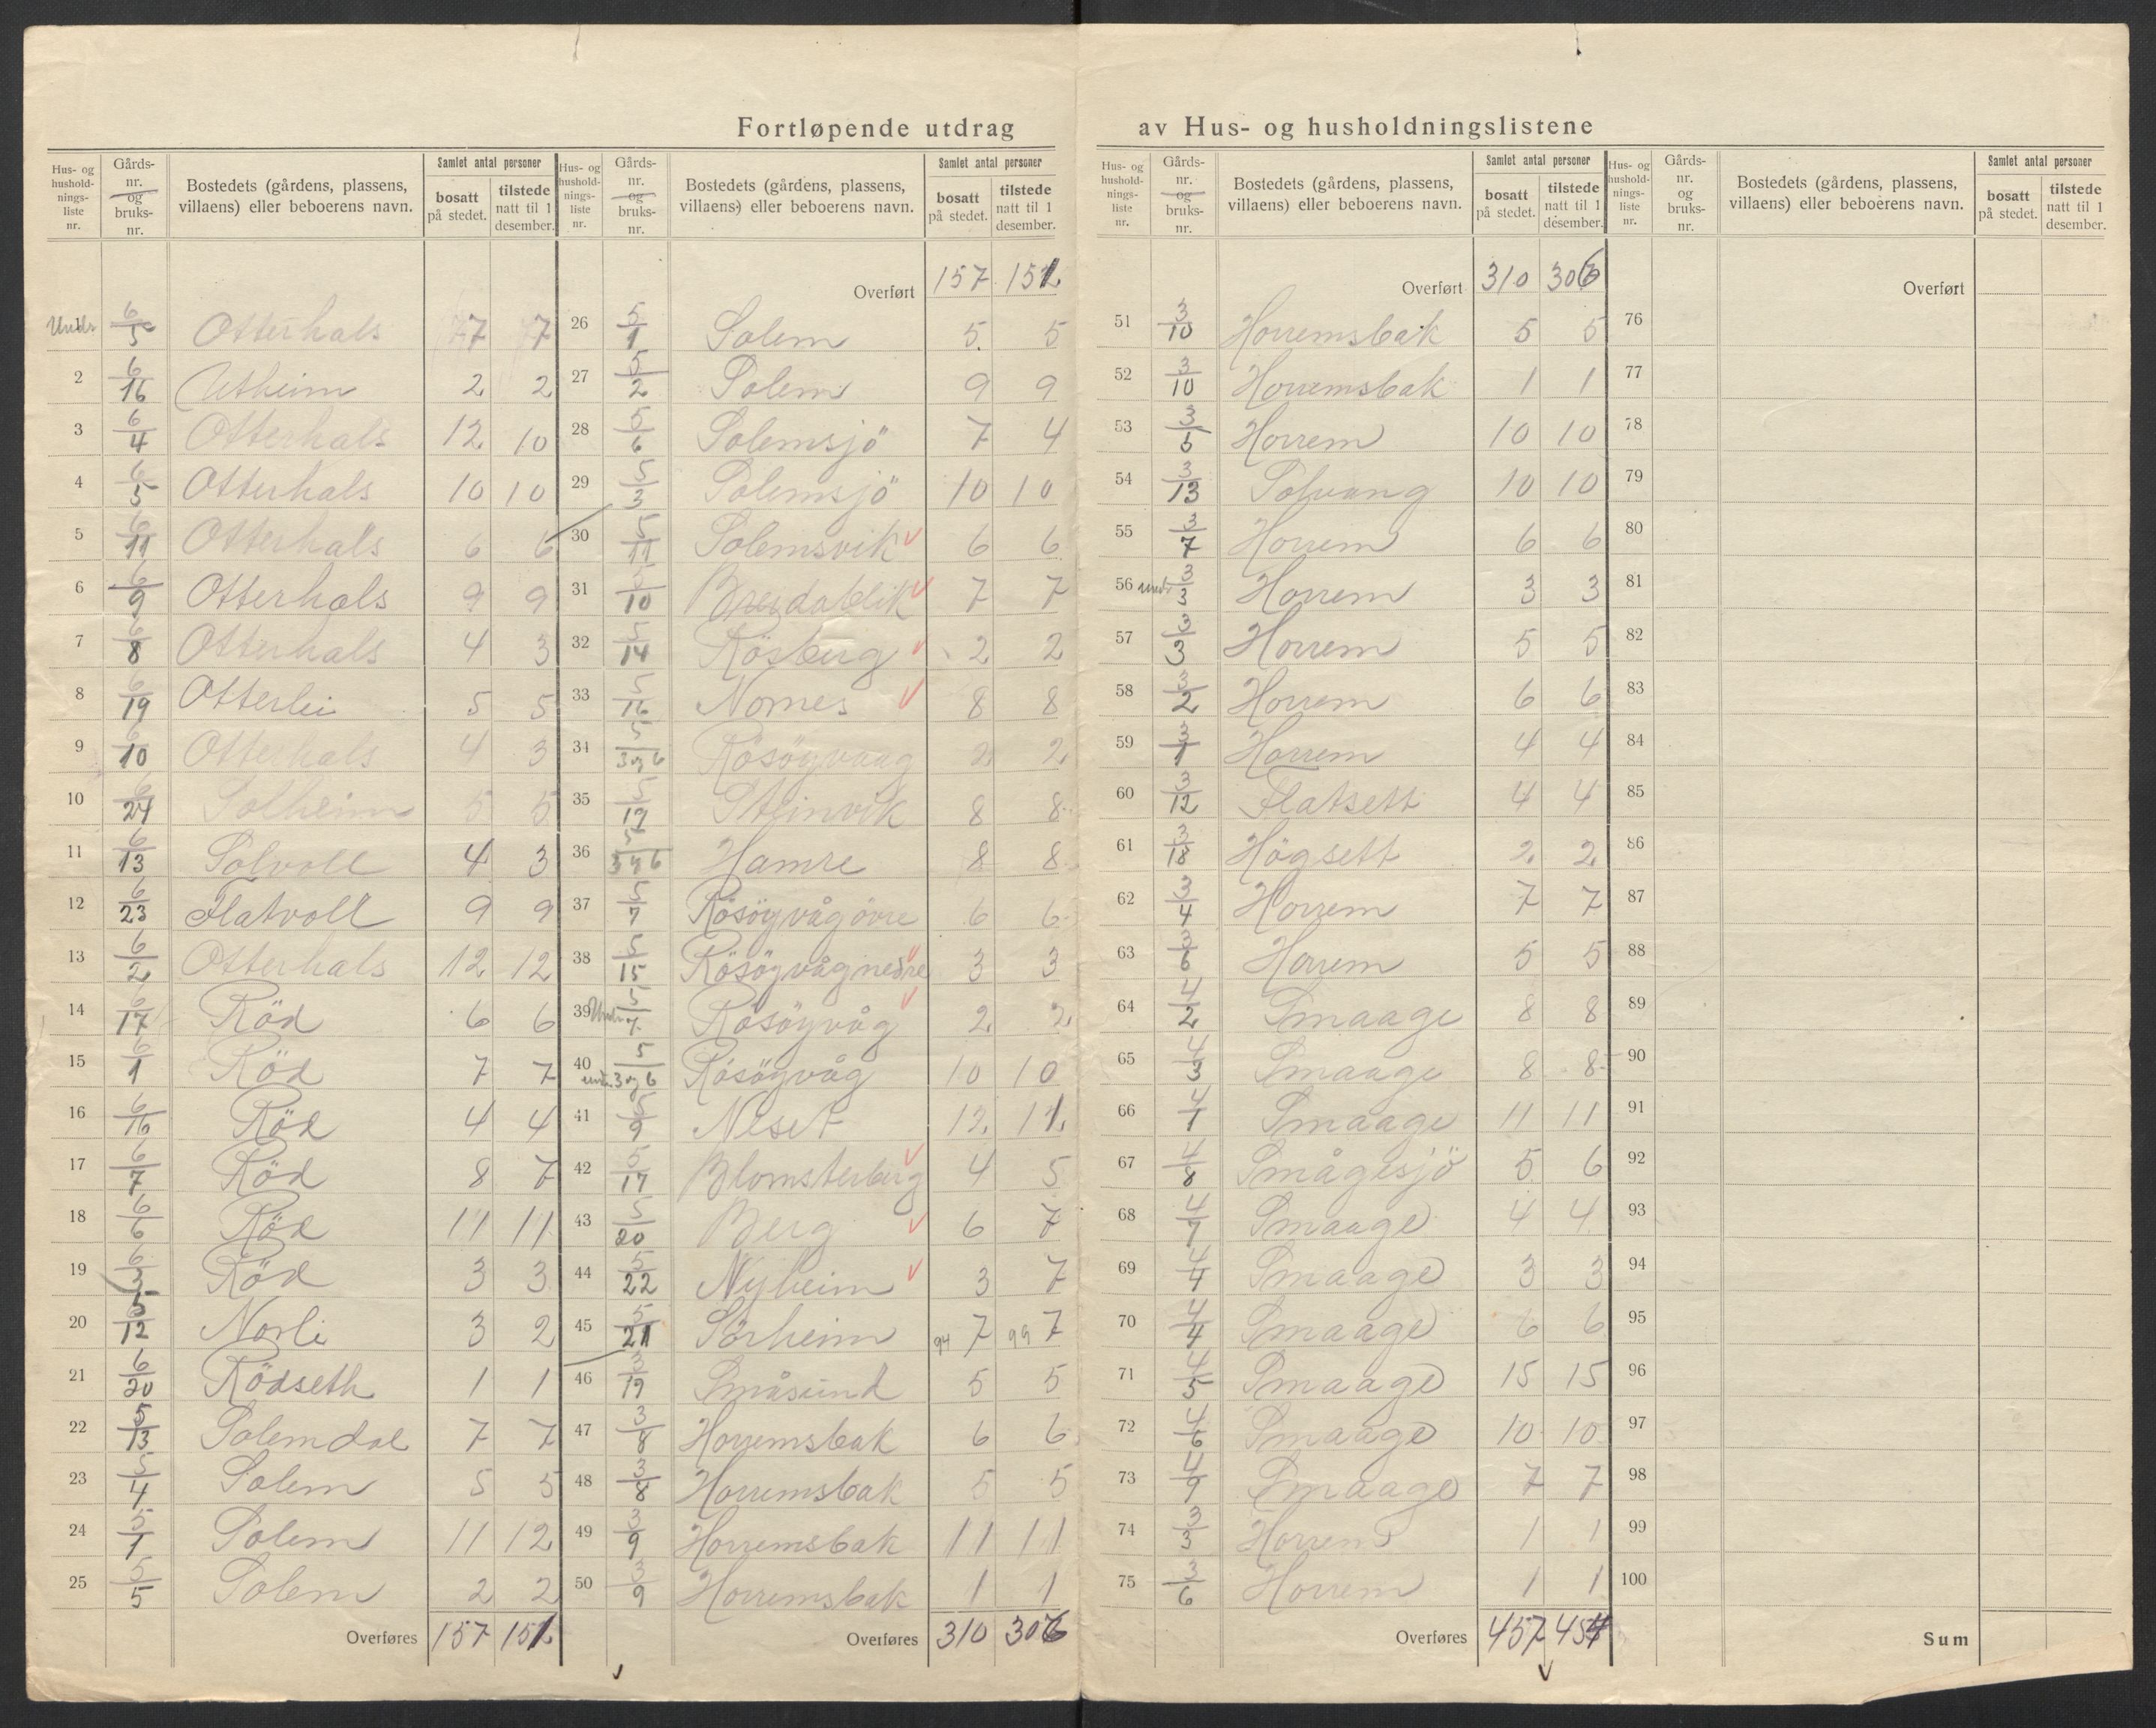 Fortløpende utdrag av Hus- og husholdningslistene
Hus- og husholdningsliste nr. | Gårdsnr. og bruksnr. | Bostedets (gårdens, plassens, villaens) eller beboerens navn. | Samlet antal personer | bosatt på stedet. | tilstede natt til 1 desember.
Undr. 6/5 Otterhals 7 7
2 6/16 Utheim 2 2
3 6/4 Otterhals 12 10
4 6/5 Otterhals 10 10
5 6/11 Otterhals 6 6
6 6/9 Otterhals 9 9
7 6/8 Otterhals 4 3
8 6/19 Otterlei 5 5
9 6/10 Otterhals 4 3
10 6/24 Solheim 5 5
11 6/13 Solvoll 4 3
12 6/23 Flatvoll 9 9
13 6/2 Otterhals 12 12
14 6/17 Röd 6 6
15 6/1 Röd 7 7
16 6/16 Röd 4 4
17 6/7 Röd 8 7
18 6/6 Röd 11 11
19 6/3 Röd 3 3
20 5/12 Norli 3 2
21 6/20 Rödseth 1 1
22 5/13 Solemdal 7 7
23 5/4 Solem 5 5
24 5/1 Solem 11 12
25 5/5 Solem 2 2
Overføres 157 151
Hus- og husholdningsliste nr. | Gårdsnr. og bruksnr. | Bostedets (gårdens, plassens, villaens) eller beboerens navn. | Samlet antal personer | bosatt på stedet. | tilstede natt til 1 desember.
Overført 157 151
26 5/1 Solem 5 5
27 5/2 Solem 9 9
28 5/6 Solemsjö 7 4
29 5/3 Solemsjö 10 10
30 5/11 Solemsvik 6 6
31 5/10 Breidablik 7 7
32 5/14 Rösberg 2 2
33 5/16 Nornes 8 8
34 5/3 og 6 Rösöyvaag 2 2
35 5/19 Steinvik 8 8
36 5/3 og 6 Hamre 8 8
37 5/7 Rösöyvåg övre 6 6
38 5/15 Rösöyvåg nedre 3 3
39 Undr. 5/7 Rösöyvåg 2 2
40 undr. 5/3 og 6 Rösöyvåg 10 10
41 5/9 Neset 12 11
42 5/17 Blomsterberg 4 5
43 5/20 Berg 6 7
44 5/22 Nyheim 3 7
45 5/21 Sörheim 94 7 99 7
46 3/19 Småsund 5 5
47 3/8 Horremsbak 6 6
48 3/8 Horremsbak 5 5
49 3/9 Horremsbak 11 11
50 3/9 Horremsbak 1 1
Overføres 310 306
Hus- og husholdningsliste nr. | Gårdsnr. og bruksnr. | Bostedets (gårdens, plassens, villaens) eller beboerens navn. | Samlet antal personer | bosatt på stedet. | tilstede natt til 1 desember.
Overført 310 306
51 3/10 Horremsbak 5 5
52 3/10 Horremsbak 1 1
53 3/5 Horrem 10 10
54 3/13 Solvang 10 10
55 3/7 Horrem 6 6
56 undr. 3/3 Horrem 3 3
57 3/3 Horrem 5 5
58 3/2 Horrem 6 6
59 3/1 Horrem 4 4
60 3/12 Flatsett 4 4
61 3/18 Högsett 2 2
62 3/4 Horrem 7 7
63 3/6 Horrem 5 5
64 4/2 Smaage 8 8
65 4/3 Smaage 8 8
66 4/1 Smaage 11 11
67 4/8 Smågesjö 5 6
68 4/7 Smaage 4 4
69 4/4 Smaage 3 3
70 4/4 Smaage 6 6
71 4/5 Smaage 15 15
72 4/6 Smaage 10 10
73 4/9 Smaage 7 7
74 3/3 Horrem 1 1
75 3/6 Horrem 1 1
Overføres 457 454
Hus- og husholdningsliste nr. | Gårdsnr. og bruksnr. | Bostedets (gårdens, plassens, villaens) eller beboerens navn. | Samlet antal personer | bosatt på stedet. | tilstede natt til 1 desember.
Overført
76
77
78
79
80
81
82
83
84
85
86
87
88
89
90
91
92
93
94
95
96
97
98
99
100
Sum